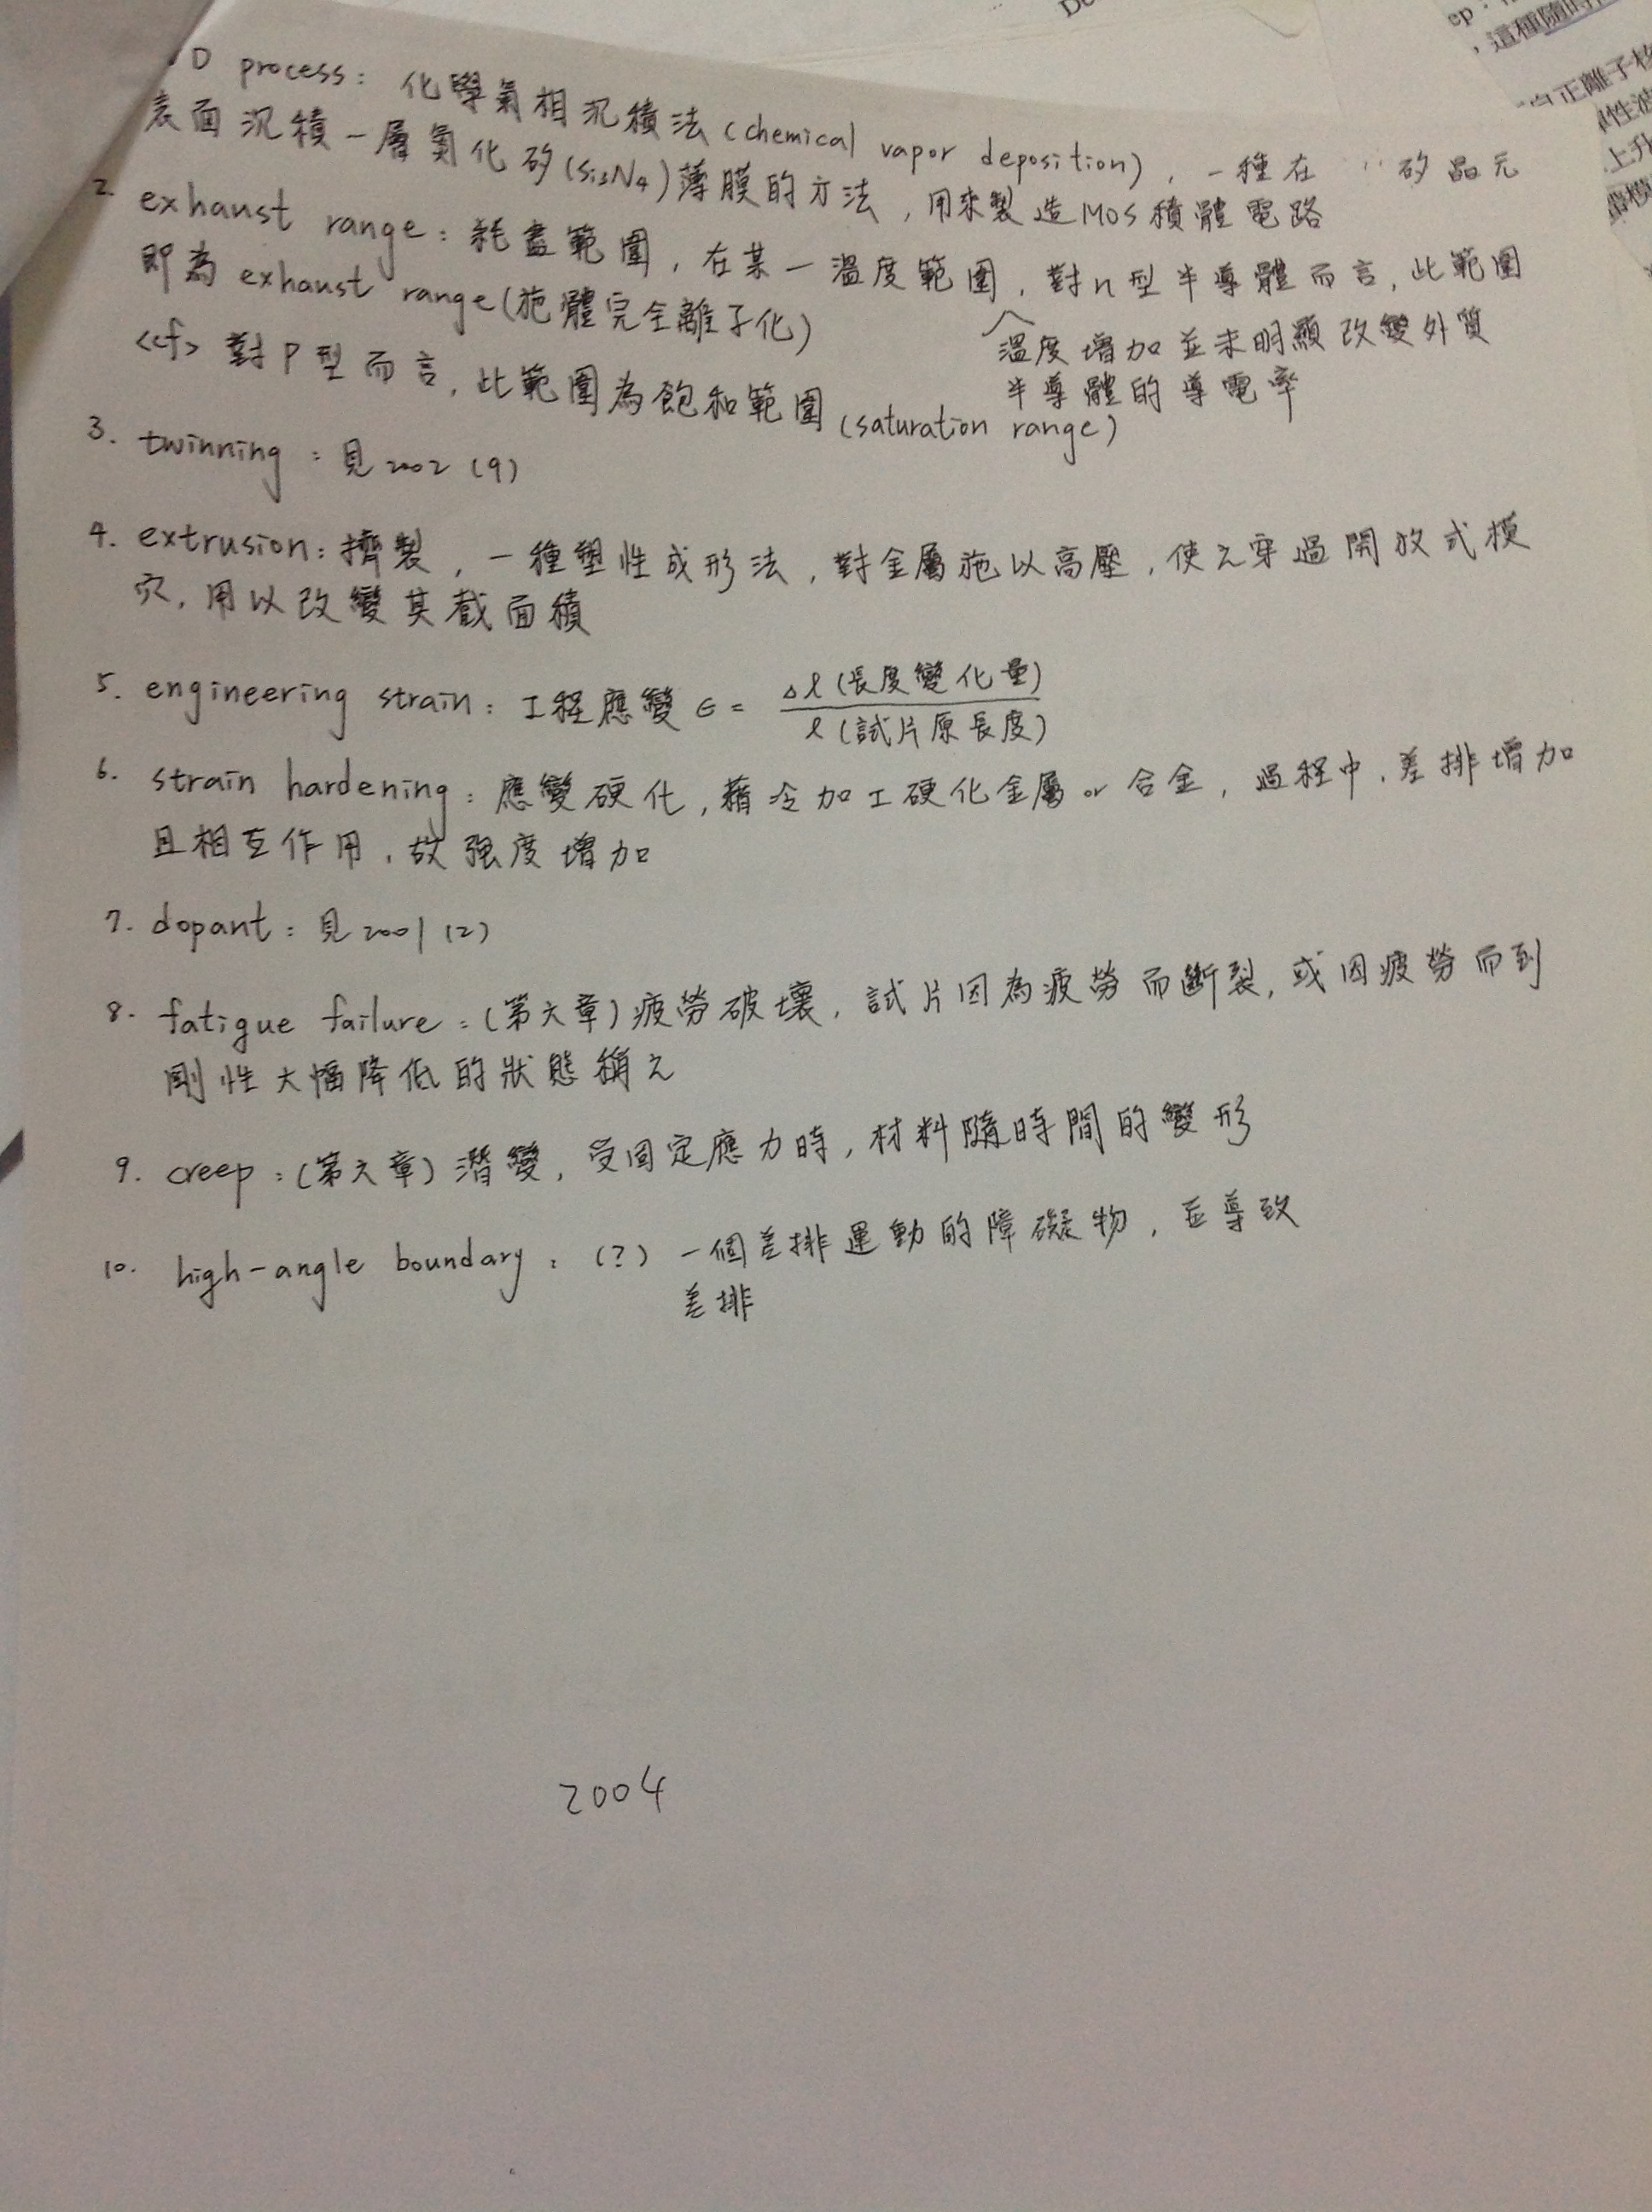 D process: 化學氣相沉積法 (chemical vapor deposition), 一種在 矽晶元
表面沉積一層氮化矽(Si3N4)薄膜的方法, 用來製造MOS積體電路
2. exhaust range: 耗盡範圍, 在某一溫度範圍, 對n型半導體而言, 此範圍
溫度增加並未明顯改變外質
半導體的導電率
即為 exhaust range(施體完全離子化)
<cf> 對P型而言, 此範圍為飽和範圍(saturation range)
3. twinning: 見2002 (9)
4. extrusion: 擠製, 一種塑性成形法, 對金屬施以高壓, 使之穿過開放式模
穴, 用以改變其截面積
5. engineering strain: 工程應變 ε = Δℓ(長度變化量)
ℓ(試片原長度)
6. strain hardening: 應變硬化, 藉冷加工硬化金屬 or 合金, 過程中, 差排增加
且相互作用, 故強度增加
7. dopant: 見2001 (2)
8. fatigue failure: (第六章) 疲勞破壞, 試片因為疲勞而斷裂, 或因疲勞而到
剛性大幅降低的狀態稱之
9. creep: (第六章) 潛變, 受固定應力時, 材料隨時間的變形
10. high-angle boundary: (?) 一個差排運動的障礙物, 並導致
差排
2004
ep:
, 這種隨時
正離子核
性波
上升